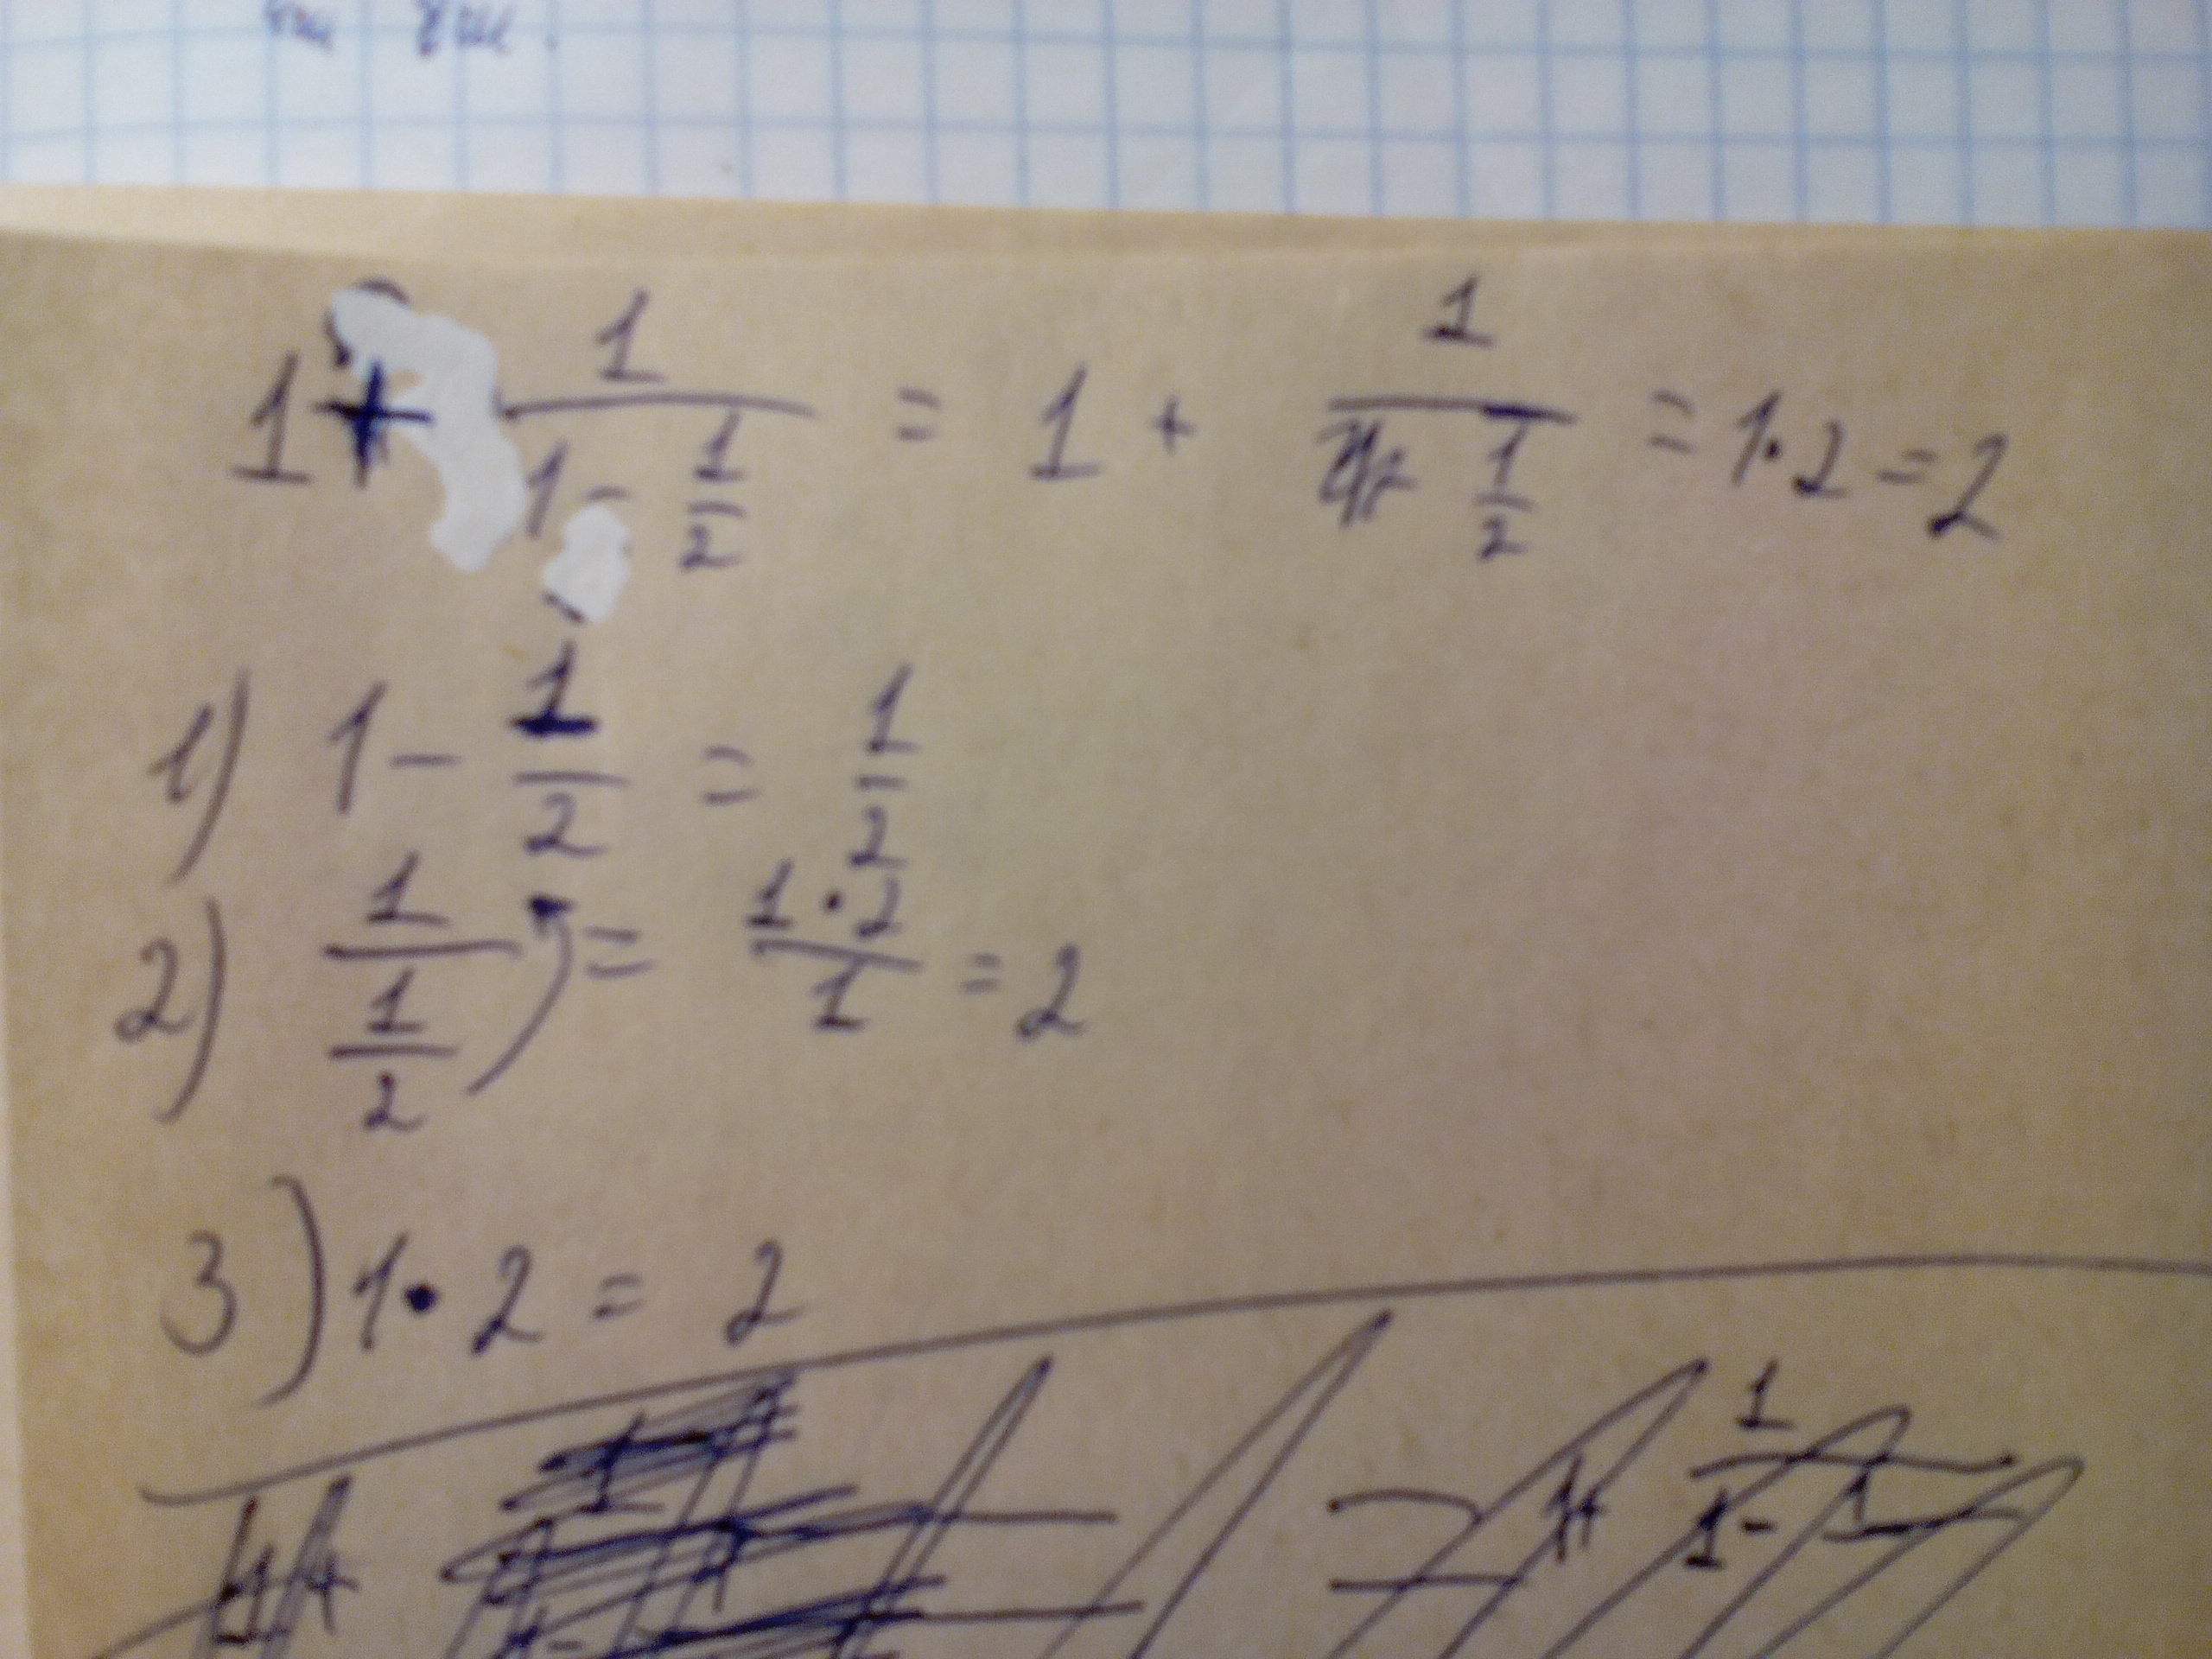 1 + 1/(1 - 1/2) = 1 + 1/(1/2) = 1·2 = 2
1) 1 - 1/2 = 1/2
2) 1/(1/2) = 1·2/1 = 2
3) 1·2 = 2